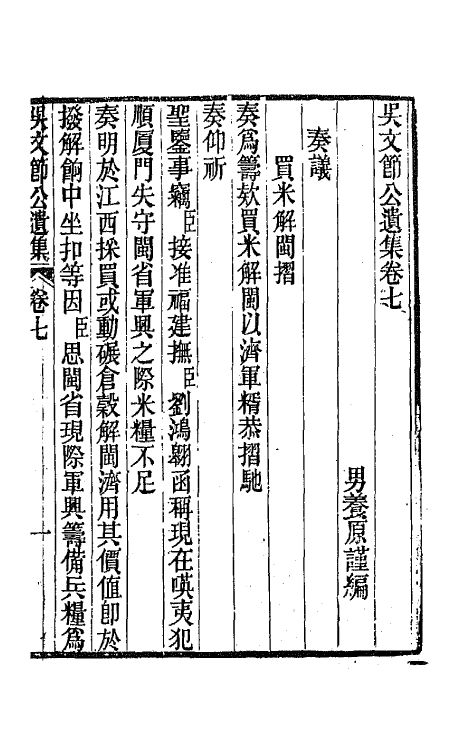 吳文節公遺集卷七
男養原謹編
奏議
買米解閩摺
奏爲籌欵買米解閩以濟軍糈恭摺馳
奏仰祈
聖鑒事竊臣接准福建撫臣劉鴻翱函稱現在嘆夷犯
順厦門失守閩省軍興之際米糧不足
奏明於江西採買或動碾倉穀解閩濟用其價值卽於
撥解餉中坐扣等因臣思閩省現際軍興籌備兵糧爲
吳文節公遺集 卷七 一